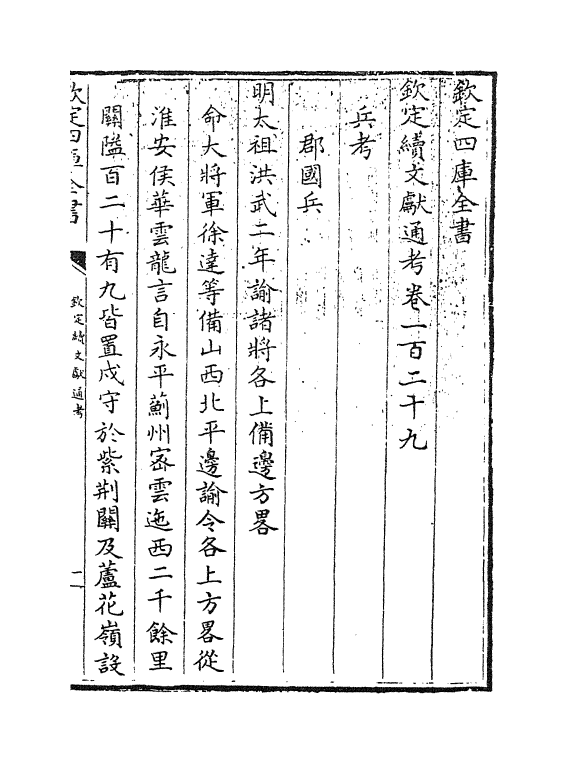 欽定四庫全書
欽定續文獻通考卷一百二十九
兵考
郡國兵
明太祖洪武二年諭諸將各上備邊方畧
命大將軍徐達等備山西北平邊諭令各上方畧從
淮安侯華雲龍言自永平薊州宻雲迤西二千餘里
關隘百二十有九皆置戍守於紫荆關及蘆花嶺設
欽定四庫全書
欽定續文獻通考